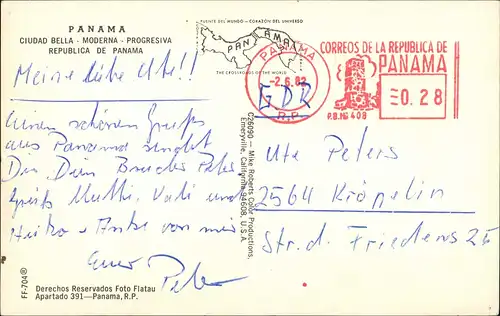 PANAMA
CIUDAD BELLA - MODERNA - PROGRESIVA
REPUBLICA DE PANAMA
PUENTE DEL MUNDO - CORAZÓN DEL UNIVERSO
PANAMA
THE CROSSROADS OF THE WORLD
PANAMA
-2.6.82
R.P.
CORREOS DE LA REPUBLICA DE
PANAMA
≡0.28
P.B.Nº 408
GDR
Meine liebe Ute!!
Einen schönen Gruß
aus Panama sendet
Dir Dein Bruder Peter
Grüß Mutti, Vati und
Heiko + Antke von mir
Euer Peter
C26090 - Mike Roberts Color Productions,
Emeryville, California 94608, U.S.A.
Ute Peters
2564 Kröpelin
Str. d. Friedens 25
FF-704®
Derechos Reservados Foto Flatau
Apartado 391—Panama, R.P.